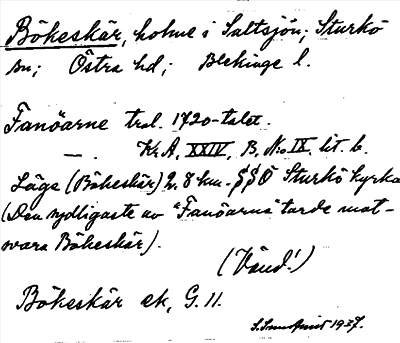 Bökeskär, holme i Saltsjön; Sturkö
sn; Östra hd; Blekinge l.
Fanöarne trol. 1720-talet.
—. Kr.A. XXIV, B. No. IX. lit. b.
Läge (Bökeskär) 2.8 km. SSÖ Sturkö kyrka
(Den sydligaste av "Fanöarna" torde mot-
svara Bökeskär).
(Vänd!)
Bökeskär ek, G. 11.
1937.